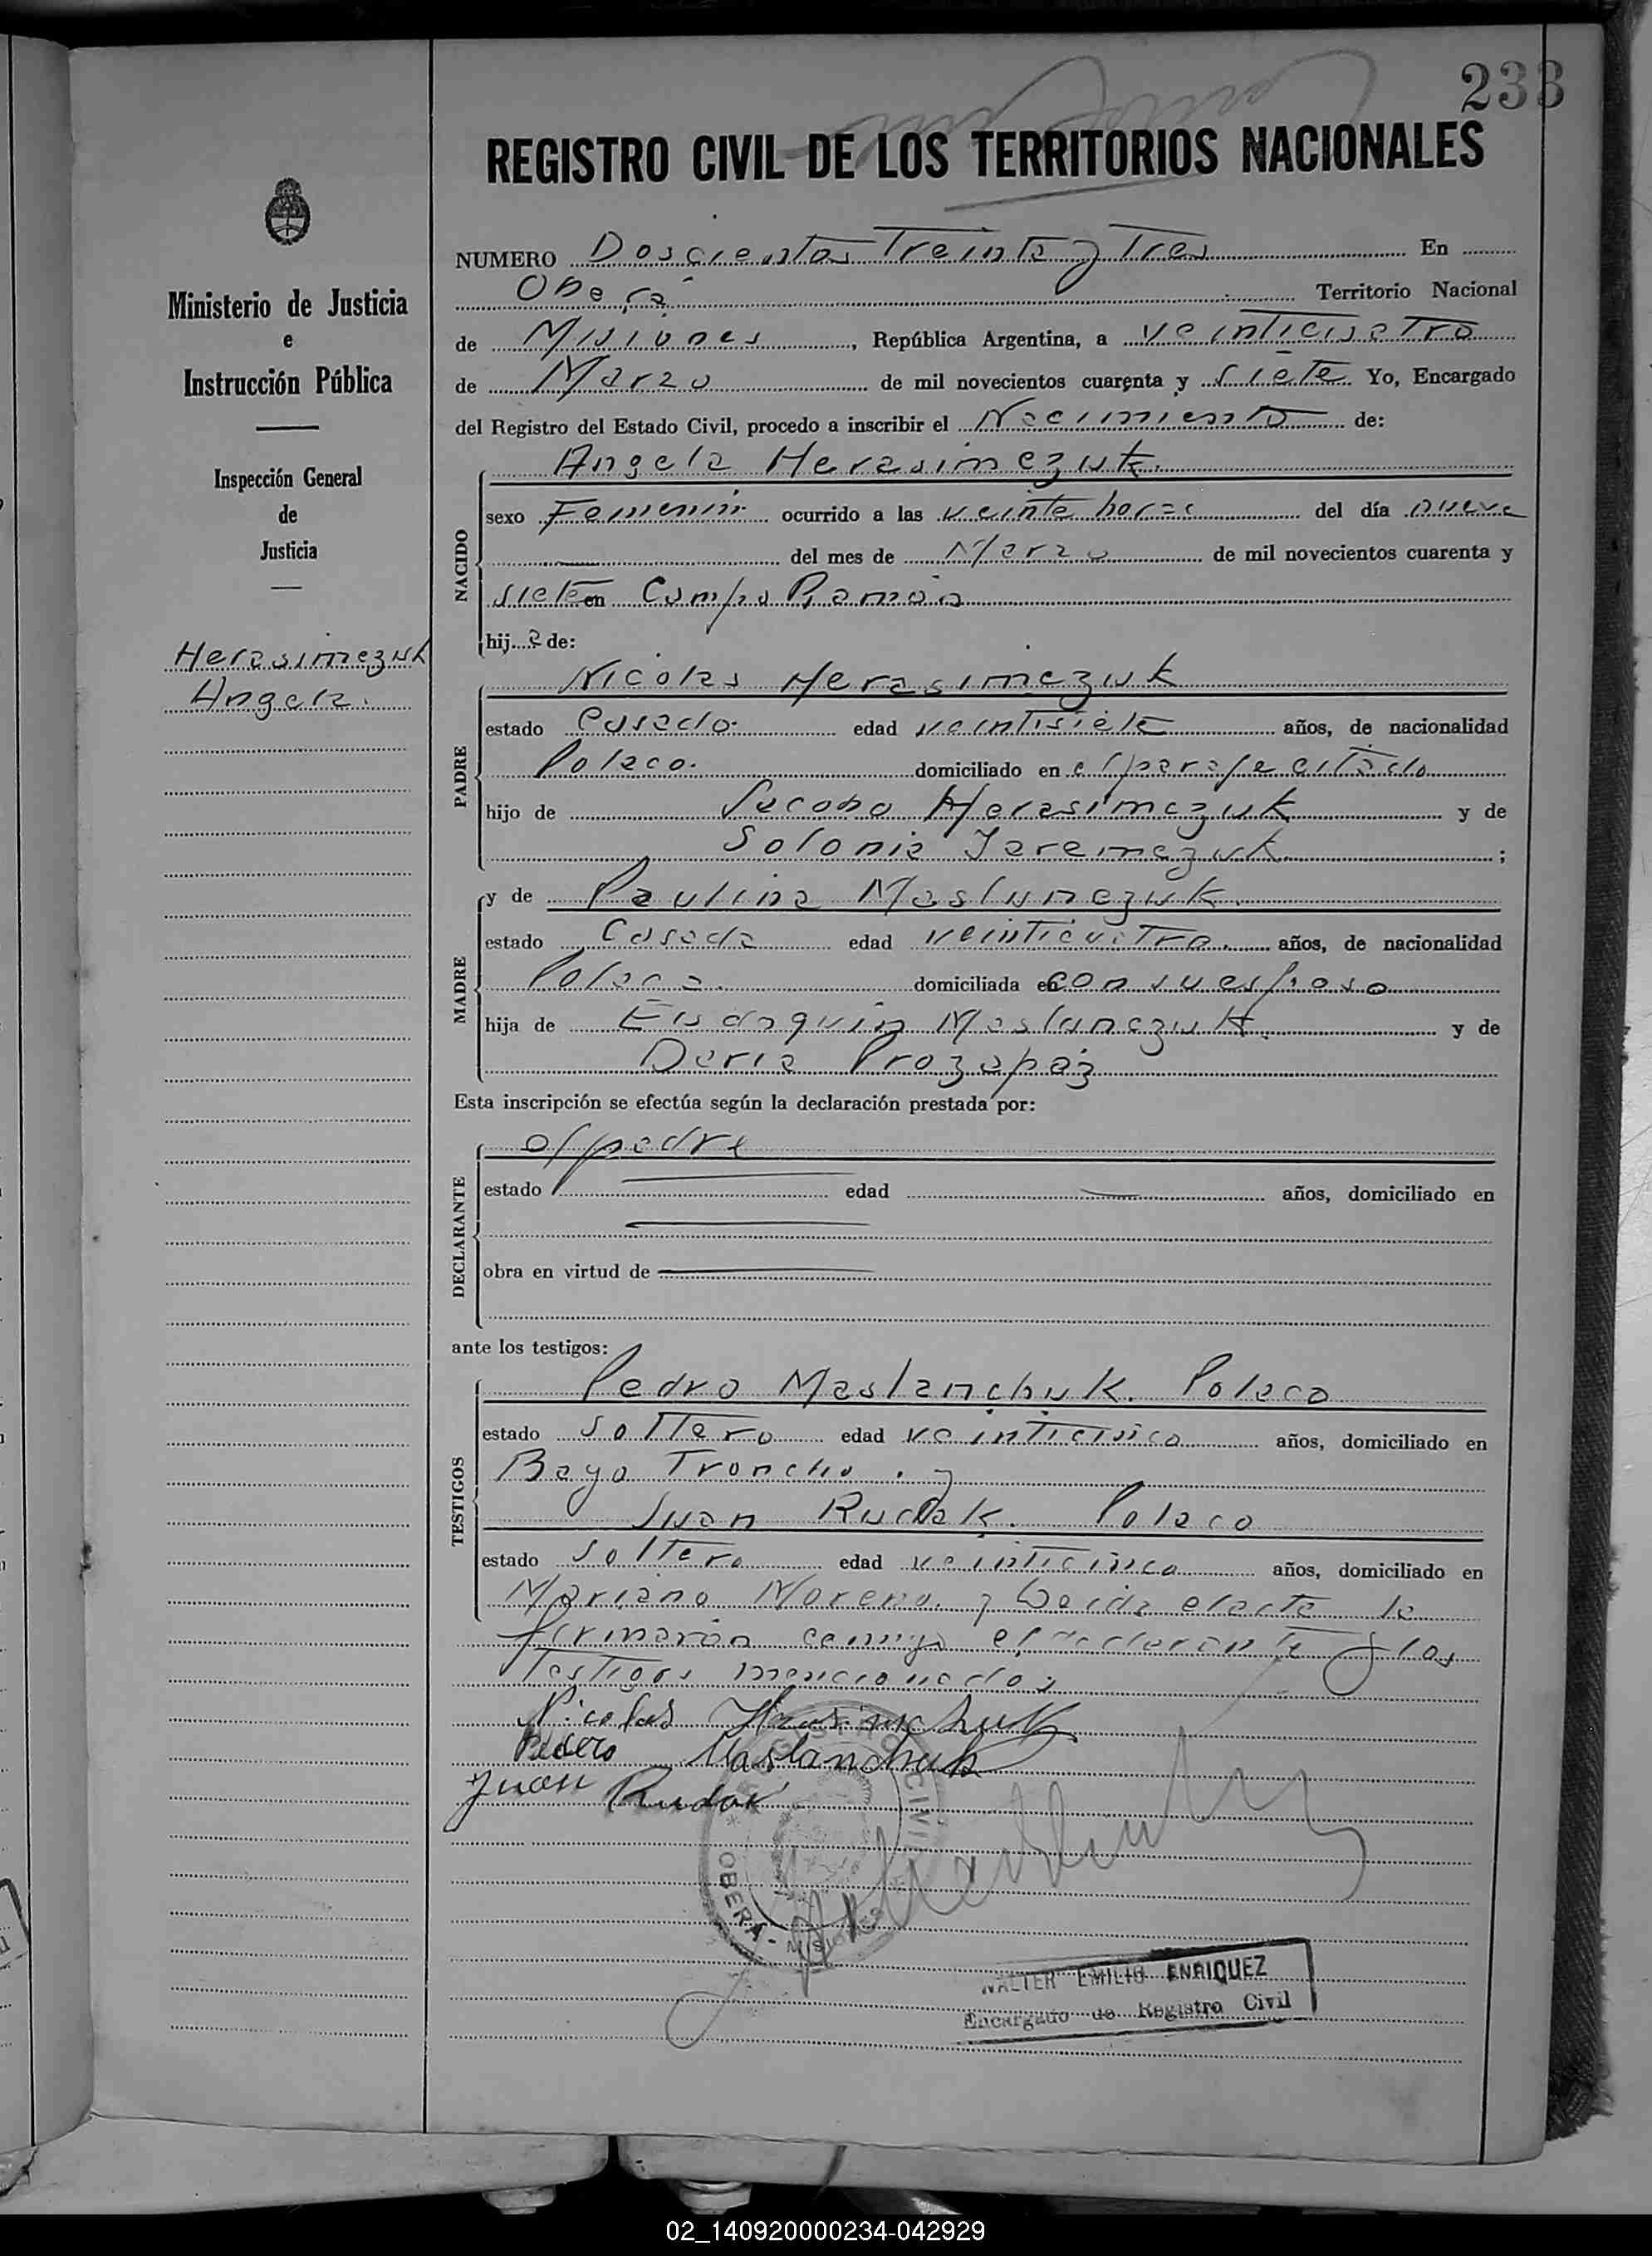 233
REGISTRO CIVIL DE LOS TERRITORIOS NACIONALES
NUMERO Doscientos Treinta y Tres En
Oberá Territorio Nacional
de Misiones, República Argentina, a veinticuatro
de Marzo de mil novecientos cuarenta y siete Yo, Encargado
del Registro del Estado Civil, procedo a inscribir el Nacimiento de:
Ministerio de Justicia
e
Instrucción Pública
Inspección General
de
Justicia
Herasimczuk
Angela.
NACIDO
Angela Herasimczuk.
sexo Femenino ocurrido a las veinte horas del día nueve
del mes de Marzo de mil novecientos cuarenta y
siete en Campo Ramón
hij a de:
PADRE
Nicolas Herasimczuk
estado Casado. edad veintisiete años, de nacionalidad
Polaco. domiciliado en el paraje citado
hijo de Jacobo Herasimczuk y de
Solonia Jeremczuk ;
MADRE
y de Paulina Maslanczuk.
estado Casada edad veinticuatro. años, de nacionalidad
Polaca. domiciliada en con su esposo
hija de Maslanczuk. y de
Daria
Esta inscripción se efectúa según la declaración prestada por:
DECLARANTE
el padre
estado edad años, domiciliado en
obra en virtud de
ante los testigos:
TESTIGOS
Pedro Maslanchuk. Polaco
estado soltero edad veinticinco años, domiciliado en
Bayo Troncho. y
Juan Rudak. Polaco
estado soltero edad veinticinco años, domiciliado en
Mariano Moreno. y Leida el acta la
firmaron conmigo el declarante y los
Testigos mencionados
Nicolas Herasimchuk
Pedro Maslanchuk
Juan Rudak
CIVIL
OBERÁ - MISIONES
WALTER EMILIO ENRIQUEZ
Encargado de Registro Civil
02_140920000234-042929